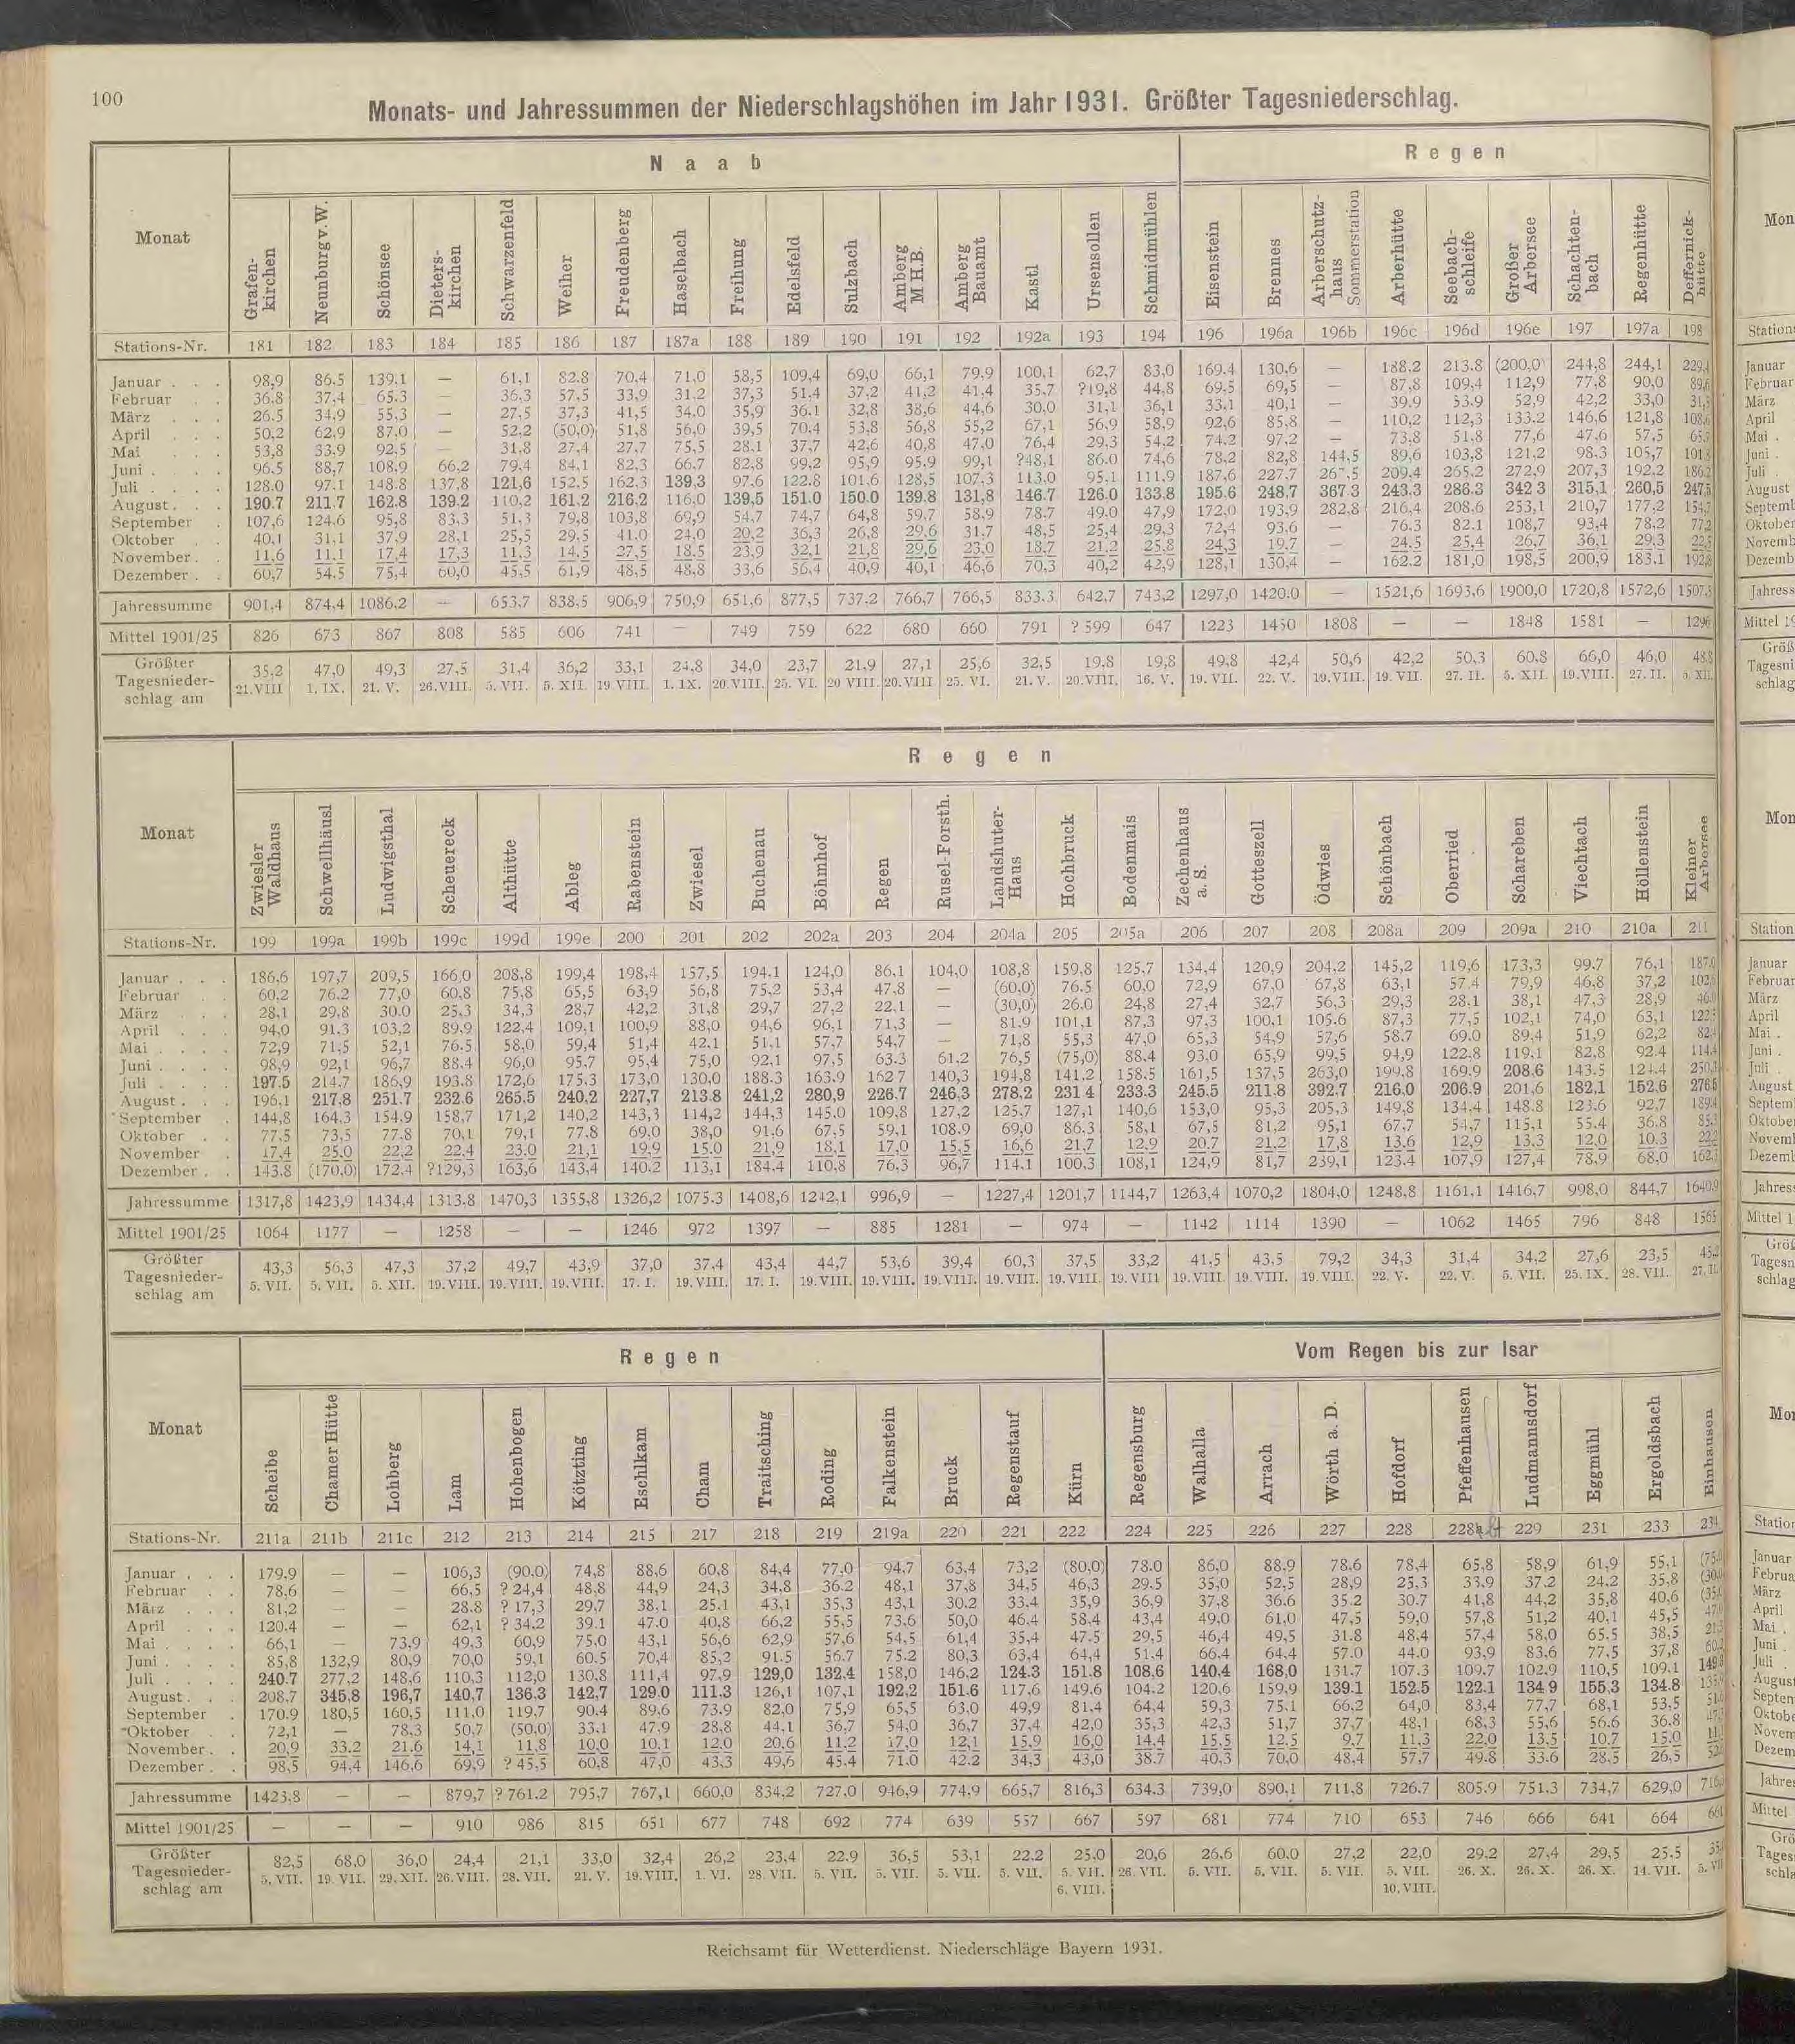 100
Monats- und Jahressummen der Niederschlagshöhen im Jahr 1931. Größter Tagesniederschlag.
Naab Regen
Monat Grafenkirchen Neunburg v. W. Schönsee Dieterskirchen Schwarzenfeld Weiher Freudenberg Haselbach Freihung Edelsfeld Sulzbach Amberg M.H.B. Amberg Bauamt Kastl Ursensollen Schmidmühlen Eisenstein Brennes Arberschutzhaus Sommerstation Arberhütte Seebachschleife Großer Arbersee Schachtenbach Regenhütte Deffernickhütte
Stations-Nr. 181 182 183 184 185 186 187 187a 188 189 190 191 192 192a 193 194 196 196a 196b 196c 196d 196e 197 197a 198
Januar . . . 98,9 86,5 139,1 — 61,1 82,8 70,4 71,0 58,5 109,4 69,0 66,1 79,9 100,1 62,7 83,0 169,4 130,6 — 188,2 213,8 (200,0) 244,8 244,1
Februar . . 36,8 37,4 65,3 — 36,3 57,5 33,9 31,2 37,3 51,4 37,2 41,2 41,4 35,7 ?19,8 44,8 69,5 69,5 — 87,8 109,4 112,9 77,8 90,0
März . . . 26,5 34,9 55,3 — 27,5 37,3 41,5 34,0 35,9 36,1 32,8 38,6 44,6 30,0 31,1 36,1 33,1 40,1 — 39,9 53,9 52,9 42,2 33,0
April . . . 50,2 62,9 87,0 — 52,2 (50,0) 51,8 56,0 39,5 70,4 53,8 56,8 55,2 67,1 56,9 58,9 92,6 85,8 — 110,2 112,3 133,2 146,6 121,8
Mai . . . 53,8 33,9 92,5 — 31,8 27,4 27,7 75,5 28,1 37,7 42,6 40,8 47,0 76,4 29,3 54,2 74,2 97,2 — 73,8 51,8 77,6 47,6 57,5
Juni . . . . 96,5 88,7 108,9 66,2 79,4 84,1 82,3 66,7 82,8 99,2 95,9 95,9 99,1 ?48,1 86,0 74,6 78,2 82,8 144,5 89,6 103,8 121,2 98,3 105,7
Juli . . . . 128,0 97,1 148,8 137,8 121,6 152,5 162,3 139,3 97,6 122,8 101,6 128,5 107,3 113,0 95,1 111,9 187,6 227,7 209,4 265,2 272,9 207,3 192,2
August . . . 190,7 211,7 162,8 139,2 110,2 161,2 216,2 116,0 139,5 151,0 150,0 139,8 131,8 146,7 126,0 133,8 195,6 248,7 367,3 243,3 286,3 342,3 315,1 260,5 247,5
September . 107,6 124,6 95,8 83,3 51,3 79,8 103,8 69,9 54,7 74,7 64,8 59,7 58,9 78,7 49,0 47,9 172,0 193,9 282,8 216,4 208,6 253,1 210,7 177,2
Oktober . . 40,1 31,1 37,9 28,1 25,5 29,5 41,0 24,0 20,2 36,3 26,8 29,6 31,7 48,5 25,4 29,3 72,4 93,6 — 76,3 82,1 108,7 93,4 78,2
November . . 11,6 11,1 17,4 17,3 11,3 14,5 27,5 18,5 23,9 32,1 21,8 29,6 23,0 18,7 21,2 25,8 24,3 19,7 — 24,5 25,4 26,7 36,1 29,3
Dezember . . 60,7 54,5 75,4 60,0 45,5 61,9 48,5 48,8 33,6 56,4 40,9 40,1 46,6 70,3 40,2 42,9 128,1 130,4 — 162,2 181,0 198,5 200,9 183,1
Jahressumme 901,4 874,4 1086,2 — 653,7 838,5 906,9 750,9 651,6 877,5 737,2 766,7 766,5 833,3 642,7 743,2 1297,0 1420,0 — 1521,6 1693,6 1900,0 1720,8 1572,6
Mittel 1901/25 826 673 867 808 585 606 741 — 749 759 622 680 660 791 ? 599 647 1223 1450 1808 — — 1848 1581 —
Größter Tagesniederschlag am 35,2 47,0 49,3 27,5 31,4 36,2 33,1 24,8 34,0 23,7 21,9 27,1 25,6 32,5 19,8 19,8 49,8 42,4 50,6 42,2 50,3 60,8 66,0 46,0
21.VIII 1. IX. 21. V. 26.VIII. 5. VII. 5. XII. 19 VIII. 1. IX. 20.VIII. 25. VI. 20 VIII. 20.VIII 25. VI. 21. V. 20.VIII. 16. V. 19. VII. 22. V. 19.VIII. 19. VII. 27. II. 5. XII. 19.VIII. 27. II. 5. XII.
Regen
Monat Zwiesler Waldhaus Schwellhäusl Ludwigsthal Scheuereck Althütte Ableg Rabenstein Zwiesel Buchenau Böhmhof Regen Rusel-Forsth. Landshuter-Haus Hochbruck Bodenmais Zechenhaus a. S. Gotteszell Ödwies Schönbach Oberried Schareben Viechtach Höllenstein Kleiner Arbersee
Stations-Nr. 199 199a 199b 199c 199d 199e 200 201 202 202a 203 204 204a 205 205a 206 207 208 208a 209 209a 210 210a 211
Januar . . . 186,6 197,7 209,5 166,0 208,8 199,4 198,4 157,5 194,1 124,0 86,1 104,0 108,8 159,8 125,7 134,4 120,9 204,2 145,2 119,6 173,3 99,7 76,1
Februar . . 60,2 76,2 77,0 60,8 75,8 65,5 63,9 56,8 75,2 53,4 47,8 — (60,0) 76,5 60,0 72,9 67,0 67,8 63,1 57,4 79,9 46,8 37,2
März . . . 28,1 29,8 30,0 25,3 34,3 28,7 42,2 31,8 29,7 27,2 22,1 — (30,0) 26,0 24,8 27,4 32,7 56,3 29,3 28,1 38,1 47,3 28,9
April . . . 94,0 91,3 103,2 89,9 122,4 109,1 100,9 88,0 94,6 96,1 71,3 — 81,9 101,1 87,3 97,3 100,1 105,6 87,3 77,5 102,1 74,0 63,1
Mai . . . . 72,9 71,5 52,1 76,5 58,0 59,4 51,4 42,1 51,1 57,7 54,7 — 71,8 55,3 47,0 65,3 54,9 57,6 58,7 69,0 89,4 51,9 62,2
Juni . . . . 98,9 92,1 96,7 88,4 96,0 95,7 95,4 75,0 92,1 97,5 63,3 61,2 76,5 (75,0) 88,4 93,0 65,9 99,5 94,9 122,8 119,1 82,8 92,4
Juli . . . . 197,5 214,7 186,9 193,8 172,6 175,3 173,0 130,0 188,3 163,9 162 7 140,3 194,8 141,2 158,5 161,5 137,5 263,0 199,8 169,9 208,6 143,5 124,4
August . . . 196,1 217,8 251,7 232,6 265,5 240,2 227,7 213,8 241,2 280,9 226,7 246,3 278,2 231 4 233,3 245,5 211,8 392,7 216,0 206,9 201,6 182,1 152,6 276,5
September . 144,8 164,3 154,9 158,7 171,2 140,2 143,3 114,2 144,3 145,0 109,8 127,2 125,7 127,1 140,6 153,0 95,3 205,3 149,8 134,4 148,8 123,6 92,7
Oktober . . 77,5 73,5 77,8 70,1 79,1 77,8 69,0 38,0 91,6 67,5 59,1 108,9 69,0 86,3 58,1 67,5 81,2 95,1 67,7 54,7 115,1 55,4 36,8
November . 17,4 25,0 22,2 22,4 23,0 21,1 19,9 15,0 21,9 18,1 17,0 15,5 16,6 21,7 12,9 20,7 21,2 17,8 13,6 12,9 13,3 12,0 10,3
Dezember . . 143,8 (170,0) 172,4 ?129,3 163,6 143,4 140,2 113,1 184,4 110,8 76,3 96,7 114,1 100,3 108,1 124,9 81,7 239,1 123,4 107,9 127,4 78,9 68,0
Jahressumme 1317,8 1423,9 1434,4 1313,8 1470,3 1355,8 1326,2 1075,3 1408,6 1242,1 996,9 — 1227,4 1201,7 1144,7 1263,4 1070,2 1804,0 1248,8 1161,1 1416,7 998,0 844,7 1640,9
Mittel 1901/25 1064 1177 — 1258 — — 1246 972 1397 — 885 1281 — 974 — 1142 1114 1390 — 1062 1465 796 848 1565
Größter Tagesniederschlag am 43,3 56,3 47,3 37,2 49,7 43,9 37,0 37,4 43,4 44,7 53,6 39,4 60,3 37,5 33,2 41,5 43,5 79,2 34,3 31,4 34,2 27,6 23,5
5. VII. 5. VII. 5. XII. 19.VIII. 19.VIII. 19.VIII. 17. I. 19.VIII. 17. I. 19.VIII. 19.VIII. 19.VIII. 19.VIII. 19.VIII. 19.VIII 19.VIII. 19.VIII. 19.VIII. 22. V. 22. V. 5. VII. 25. IX. 28. VII.
Regen Vom Regen bis zur Isar
Monat Scheibe Chamer Hütte Lohberg Lam Hohenbogen Kötzting Eschlkam Cham Traitsching Roding Falkenstein Bruck Regenstauf Kürn Regensburg Walhalla Arrach Wörth a. D. Hofdorf Pfeffenhausen Ludmannsdorf Eggmühl Ergoldsbach Einhausen
Stations-Nr. 211a 211b 211c 212 213 214 215 217 218 219 219a 220 221 222 224 225 226 227 228 228 229 231 233 234
Januar . . . 179,9 — — 106,3 (90,0) 74,8 88,6 60,8 84,4 77,0 94,7 63,4 73,2 (80,0) 78,0 86,0 88,9 78,6 78,4 65,8 58,9 61,9 55,1
Februar . . 78,6 — — 66,5 ? 24,4 48,8 44,9 24,3 34,8 36,2 48,1 37,8 34,5 46,3 29,5 35,0 52,5 28,9 25,3 33,9 37,2 24,2 35,8
März . . . 81,2 — — 28,8 ? 17,3 29,7 38,1 25,1 43,1 35,3 43,1 30,2 33,4 35,9 36,9 37,8 36,6 35,2 30,7 41,8 44,2 35,8 40,6
April . . . 120,4 — — 62,1 ? 34,2 39,1 47,0 40,8 66,2 55,5 73,6 50,0 46,4 58,4 43,4 49,0 61,0 47,5 59,0 57,8 51,2 40,1 45,5
Mai . . . . 66,1 — 73,9 49,3 60,9 75,0 43,1 56,6 62,9 57,6 54,5 61,4 35,4 47,5 29,5 46,4 49,5 31,8 48,4 57,4 58,0 65,5 38,5
Juni . . . . 85,8 132,9 80,9 70,0 59,1 60,5 70,4 85,2 91,5 56,7 75,2 80,3 63,4 64,4 51,4 66,4 64,4 57,0 44,0 93,9 83,6 77,5 37,8
Juli . . . . 240,7 277,2 148,6 110,3 112,0 130,8 111,4 97,9 129,0 132,4 158,0 146,2 124,3 151,8 108,6 140,4 168,0 131,7 107,3 109,7 102,9 110,5 109,1
August . . . 208,7 345,8 196,7 140,7 136,3 142,7 129,0 111,3 126,1 107,1 192,2 151,6 117,6 149,6 104,2 120,6 159,9 139,1 152,5 122,1 134 9 155,3 134,8
September . 170,9 180,5 160,5 111,0 119,7 90,4 89,6 73,9 82,0 75,9 65,5 63,0 49,9 81,4 64,4 59,3 75,1 66,2 64,0 83,4 77,7 68,1 53,5
Oktober . . 72,1 — 78,3 50,7 (50,0) 33,1 47,9 28,8 44,1 36,7 54,0 36,7 37,4 42,0 35,3 42,3 51,7 37,7 48,1 68,3 55,6 56,6 36,8
November . . 20,9 33,2 21,6 14,1 11,8 10,0 10,1 12,0 20,6 11,2 17,0 12,1 15,9 16,0 14,4 15,5 12,5 9,7 11,3 22,0 13,5 10,7 15,0
Dezember . . 98,5 94,4 146,6 69,9 ? 45,5 60,8 47,0 43,3 49,6 45,4 71,0 42,2 34,3 43,0 38,7 40,3 70,0 48,4 57,7 49,8 33,6 28,5 26,5
Jahressumme 1423,8 — — 879,7 ? 761,2 795,7 767,1 660,0 834,2 727,0 946,9 774,9 665,7 816,3 634,3 739,0 890,1 711,8 726,7 805,9 751,3 734,7 629,0
Mittel 1901/25 — — — 910 986 815 651 677 748 692 774 639 557 667 597 681 774 710 653 746 666 641 664
Größter Tagesniederschlag am 82,5 68,0 36,0 24,4 21,1 33,0 32,4 26,2 23,4 22,9 36,5 53,1 22,2 25,0 20,6 26,6 60,0 27,2 22,0 29,2 27,4 29,5 25,5
5. VII. 19. VII. 29. XII. 26.VIII. 28. VII. 21. V. 19.VIII. 1. VI. 28. VII. 5. VII. 5. VII. 5. VII. 5. VII. 5. VII. 26. VII. 5. VII. 5. VII. 5. VII. 5. VII. 26. X. 26. X. 26. X. 14. VII.
6. VIII. 10. VIII.
Reichsamt für Wetterdienst. Niederschläge Bayern 1931.